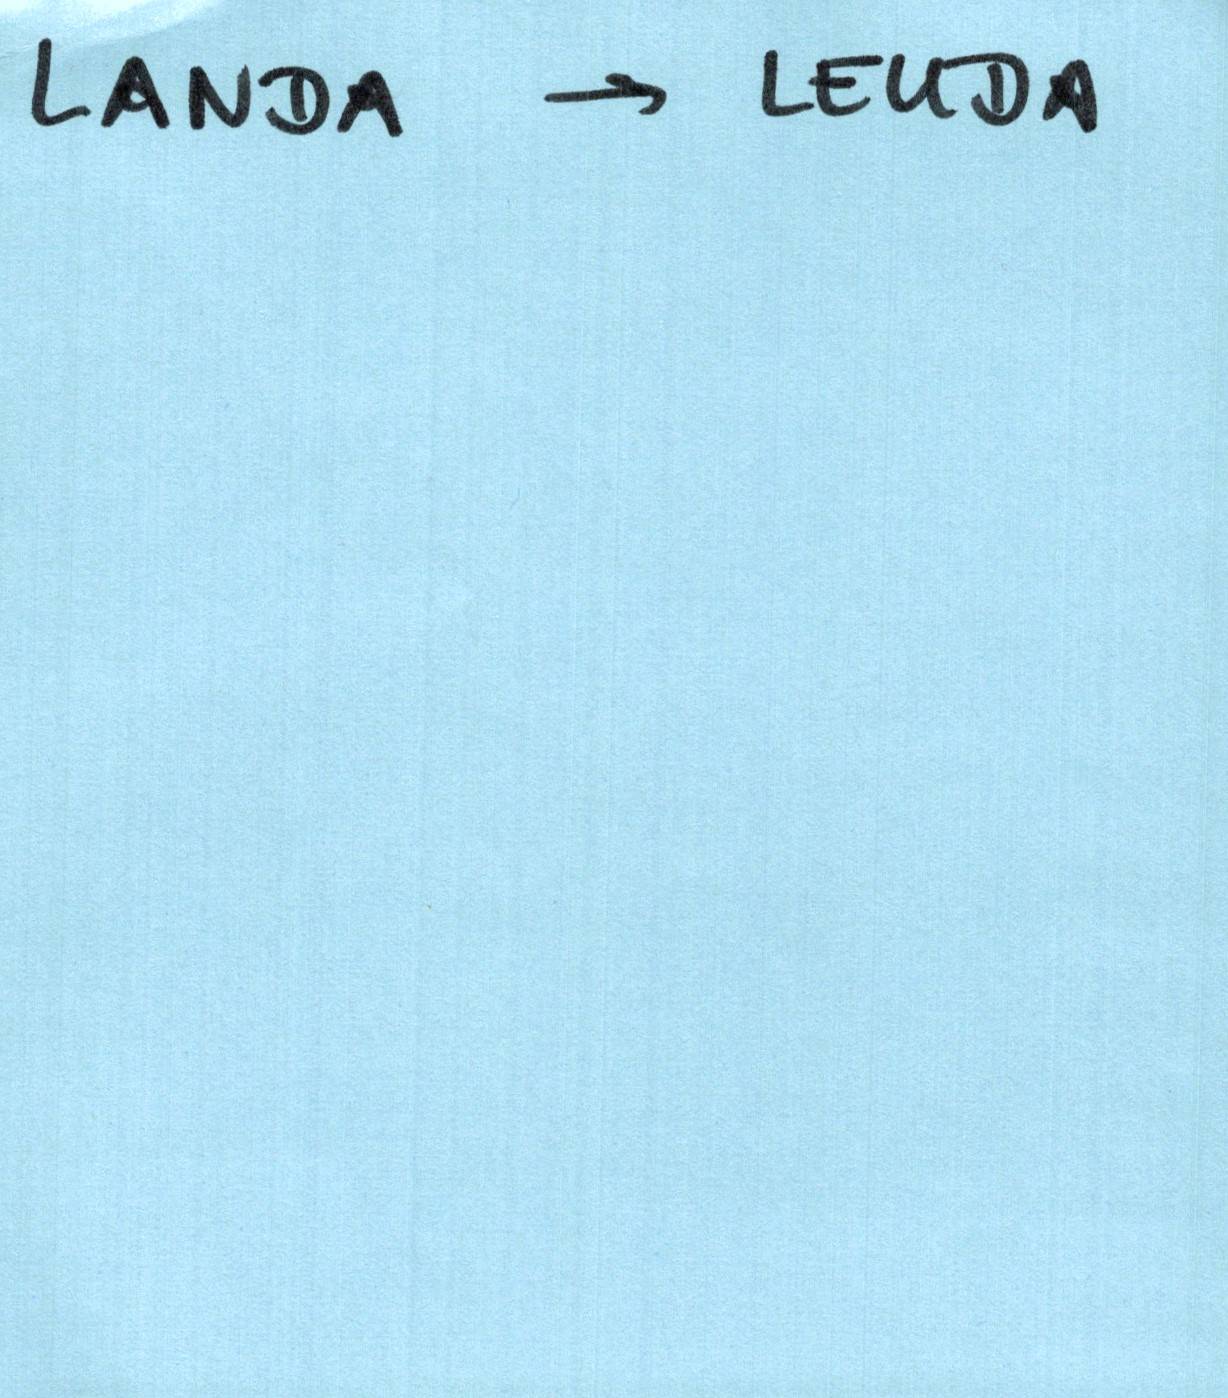 LANDA → LEUDA